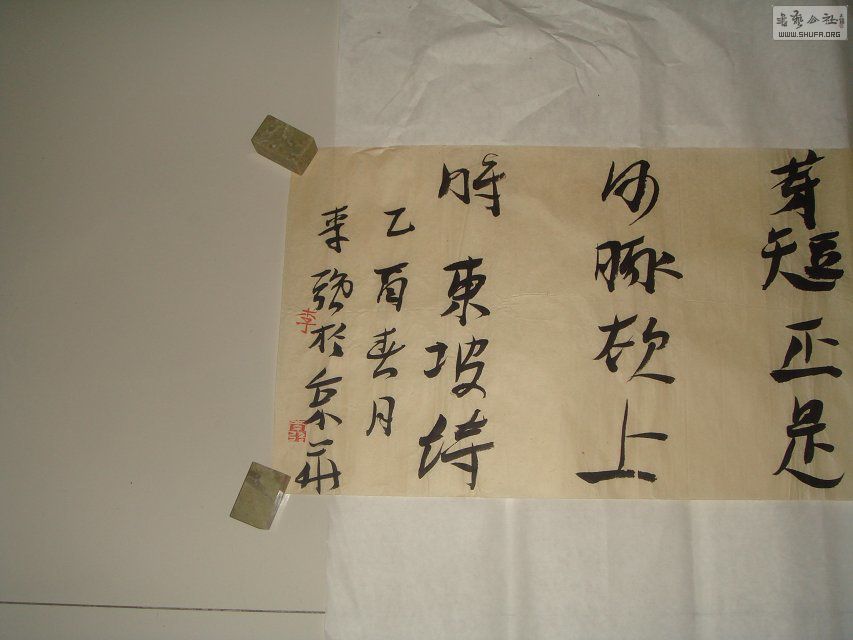 芽短正是
河豚欲上
時 東坡詩
乙酉春月
李强於京華
李
書藝公社
WWW.SHUFA.ORG